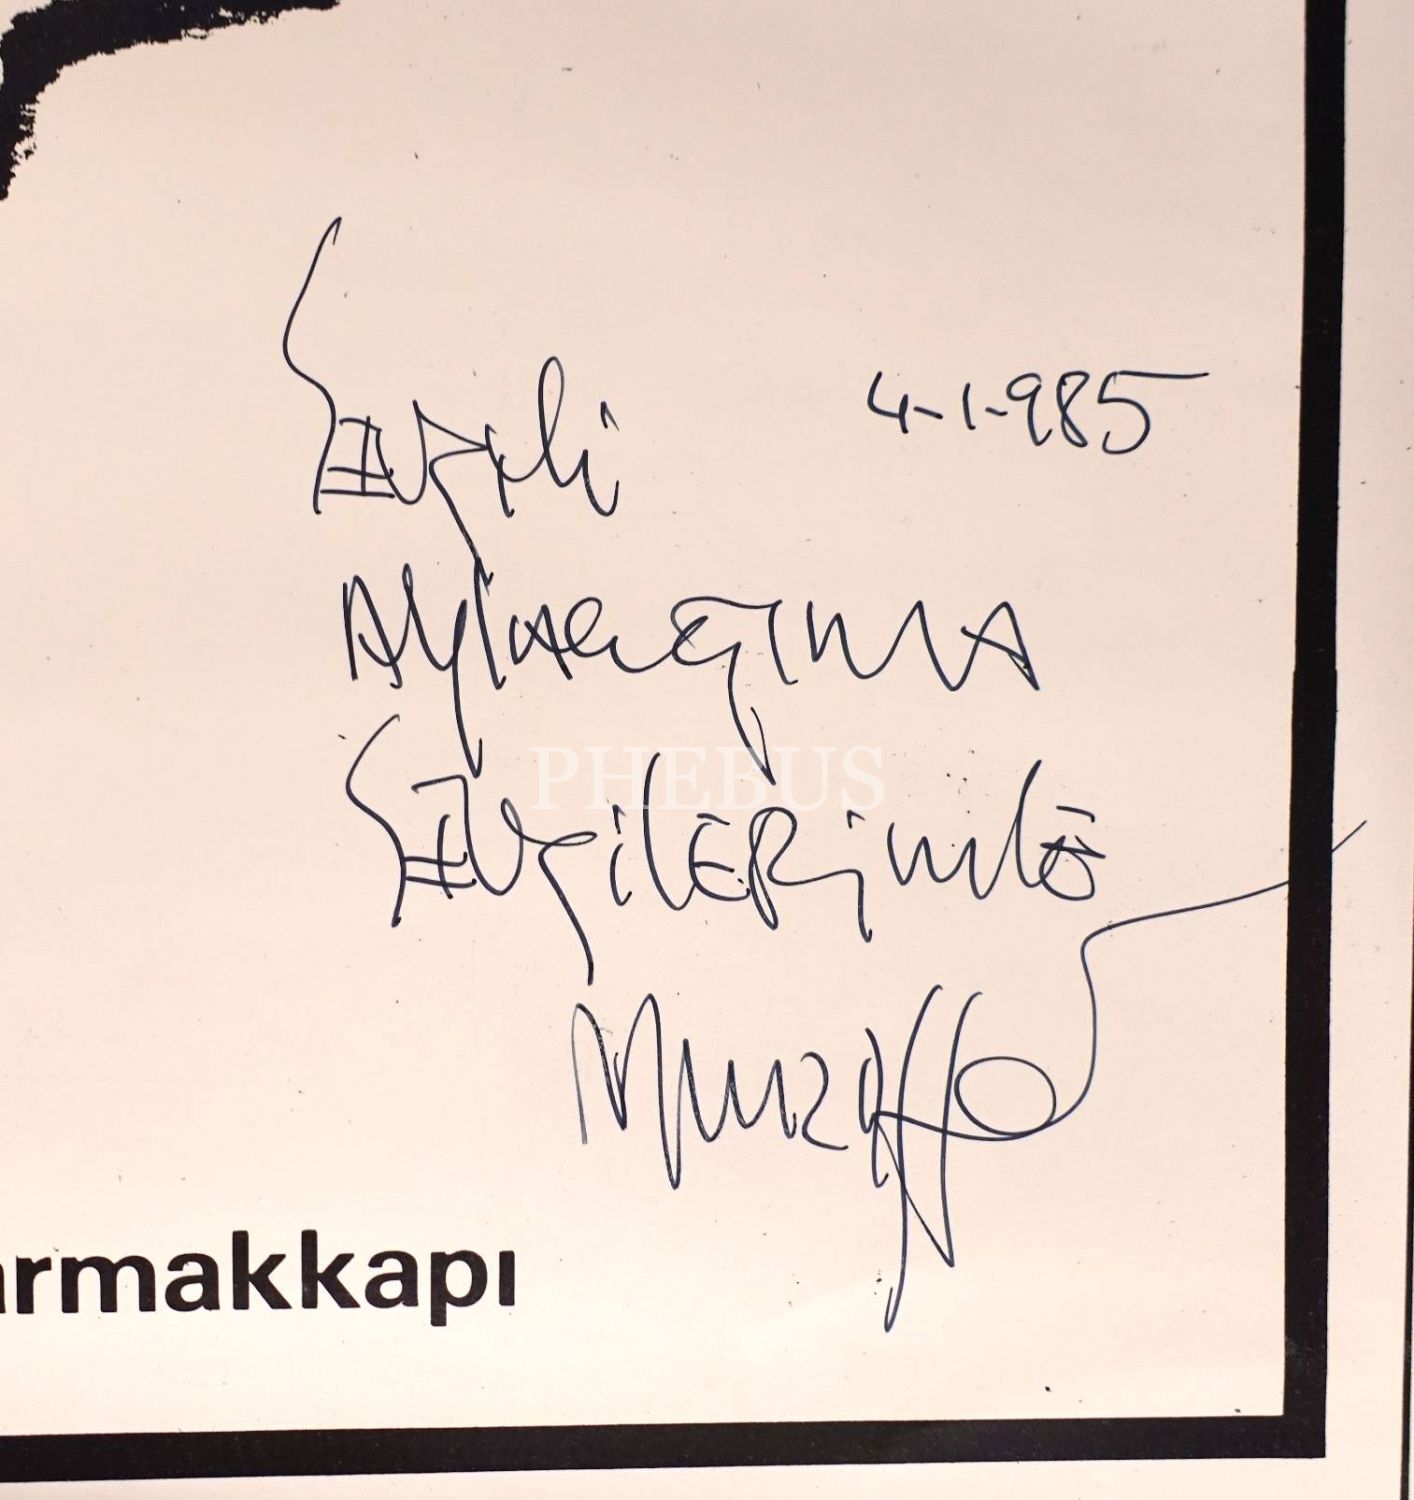 Sevgili 4-1-985
SEVgilERimlE
Muzaffer
PHEBUS
armakkapı